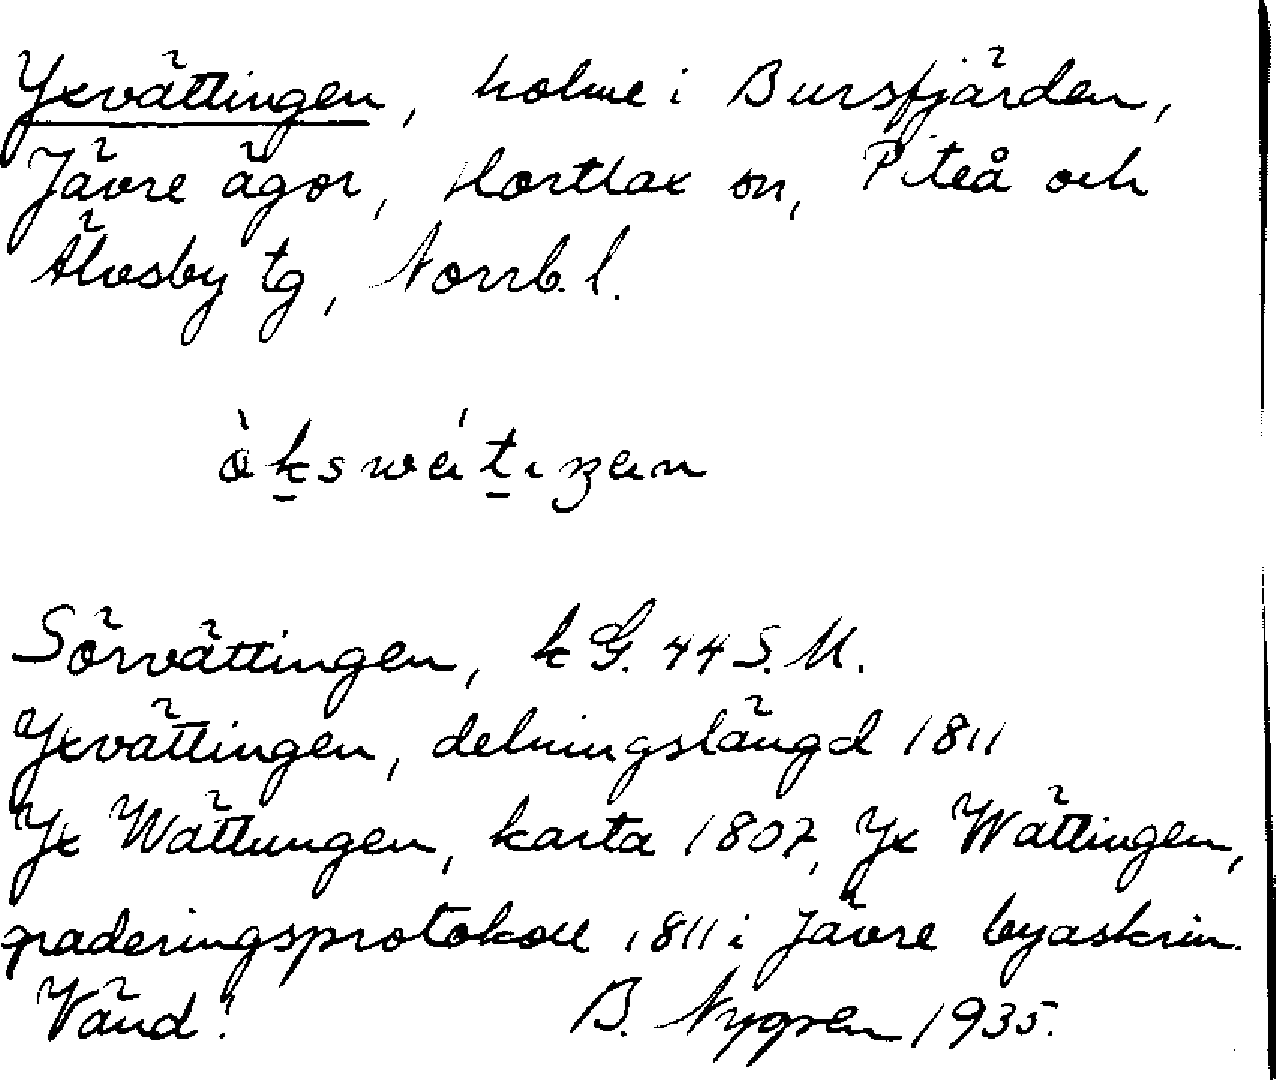 Yxvättingen, holme i Bursfjärden,
Jävre ägor, Hortlax sn, Piteå och
Älvsby tg, Norrb. l.
Sörvättingen, k G. 44 S. M.
Yxvättingen, delningslängd 1811
Yx Wättungen, karta 1807, Yx Wättingen,
graderingsprotokoll 1811 i Jävre byaskrin.
Vänd!  B. Nygren 1935.